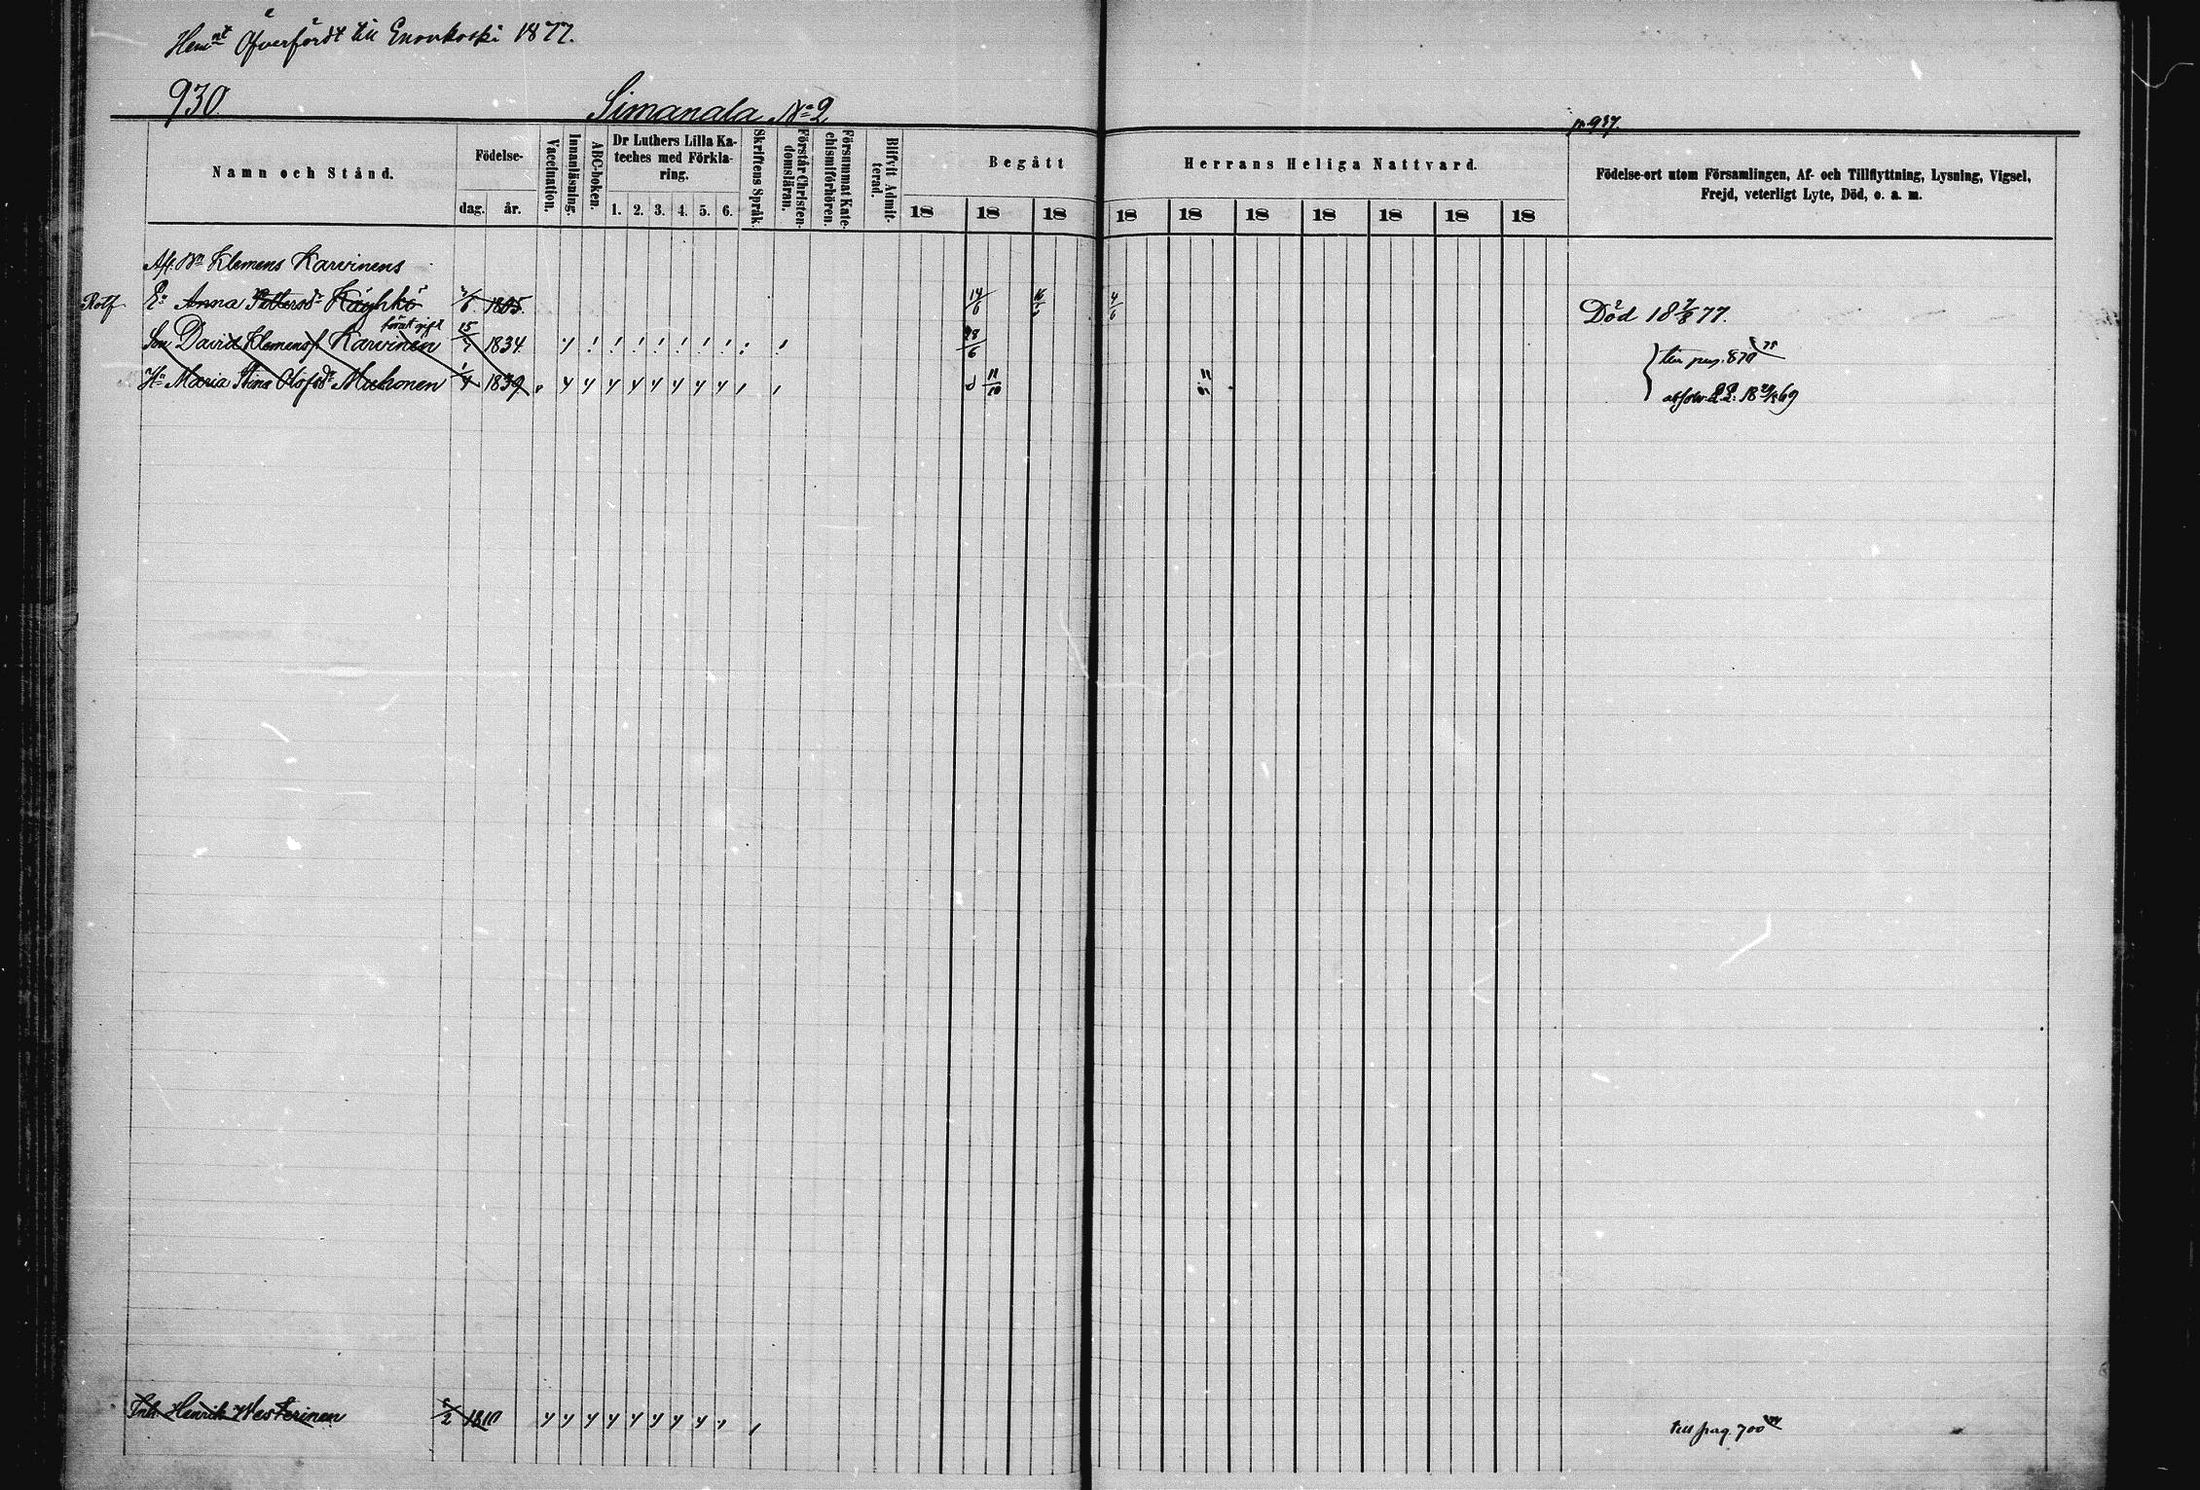 Hemnt Öfverfördt till Enonkoski 1877.
930.
Simanala No 2
p. 937.
Namn och Stånd.
Födelse-
dag. år.
Vaccination.
Innanläsning.
ABC-boken.
Dr Luthers Lilla Ka-
teches med Förkla-
ring.
1. 2. 3. 4. 5. 6.
Skriftens Språk.
Förstår Christen-
domsläran.
Försummat Kate-
chismiförhören.
Blifvit Admit-
terad.
Begått Herrans Heliga Nattvard.
18 18 18 18 18 18 18 18 18 18
Födelse-ort utom Församlingen, Af- och Tillflyttning, Lysning, Vigsel,
Frejd, veterligt Lyte, Död, o. a. m.
Afl. Bn Klemens Karvinens
Rotf Ea Anna Pettersdr Käyhkö 1805. 14/6 4/6 Död 18 7/8 77.
förut gift
Son David Klemenss. Karvinen 15/7 1834. 28/6 870 75
Hu Maria Stina Olofsdr Muhonen 1/4 1839 11/10 absolv. 69
Inh. Henrik Westerinen 1810 till pag. 700